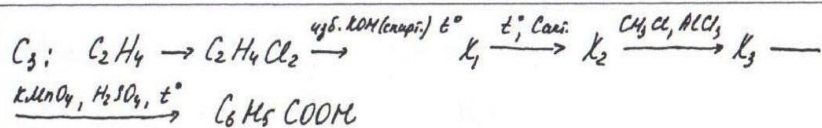 C₃: C₂H₄ → C₂H₄Cl₂ —изб. KOH (спирт.) t°→ X₁ —t°, Cакт.→ X₂ —CH₃Cl, AlCl₃→ X₃ —
—KMnO₄, H₂SO₄, t°→ C₆H₅COOH